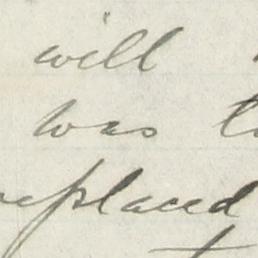 will
was
replaced